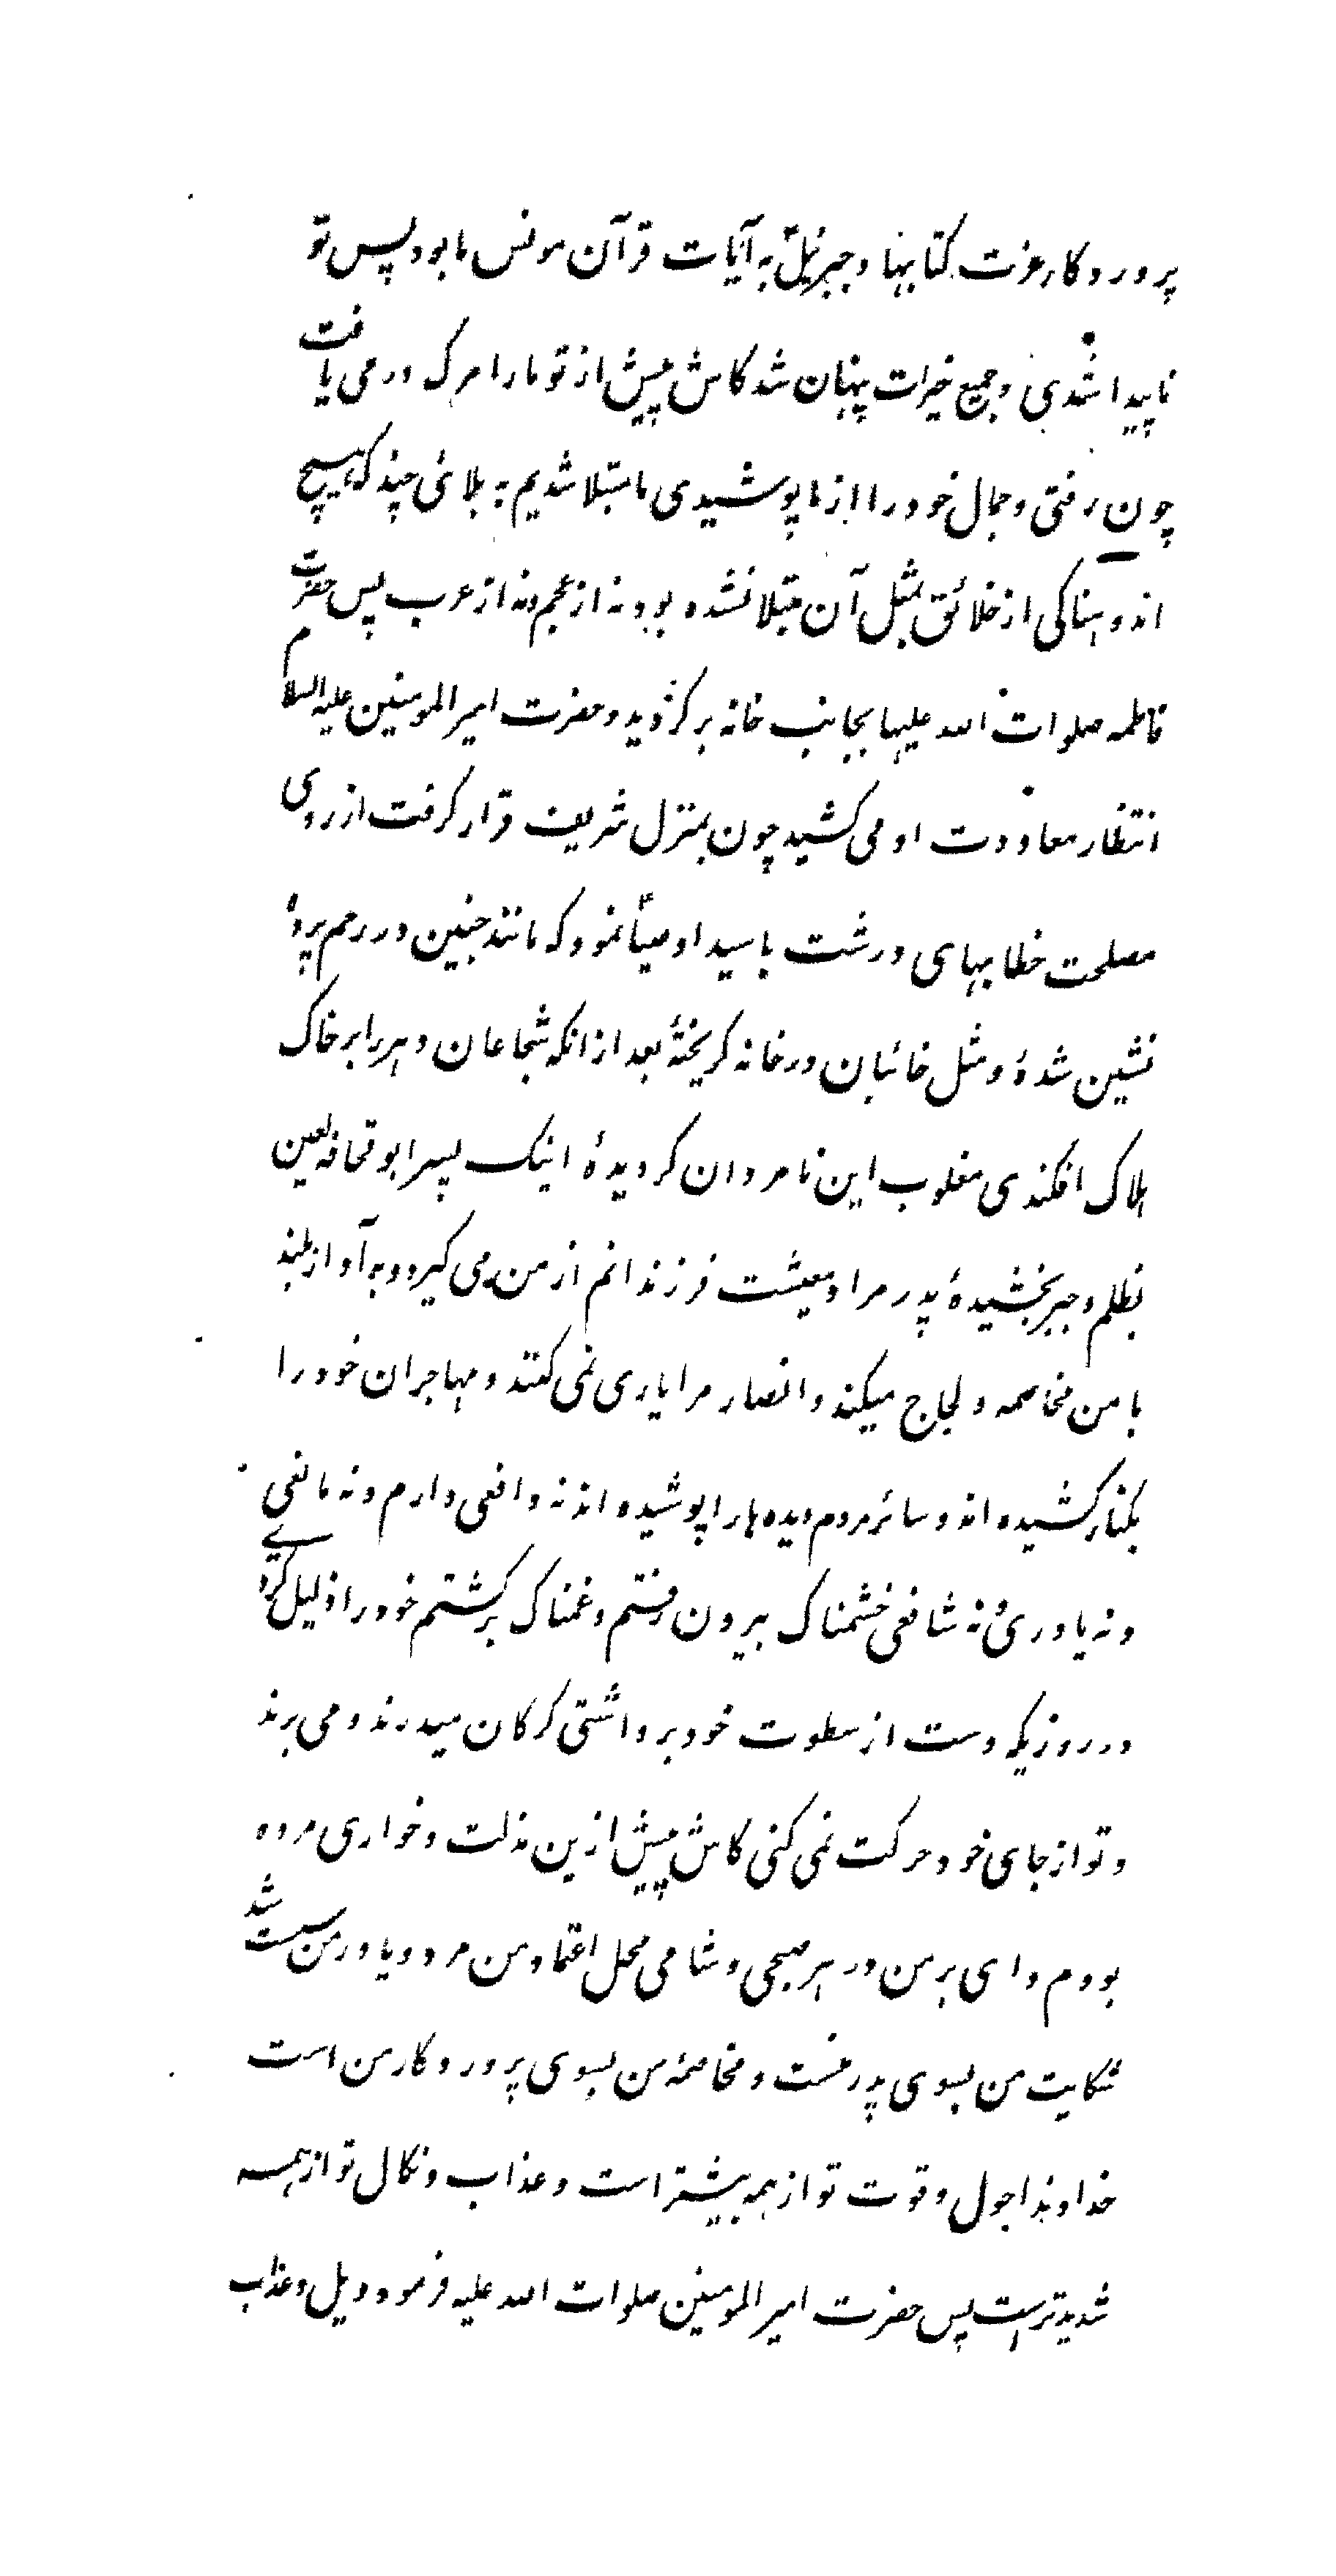 پروردکار عزت کتابها و جبرئیل به آیات قرآن مونس ما بود پس تو
ناپیدا شدی و جمیع خیرات پنهان شد کاش پیش از تو ما را مرک در می یافت
چون رفتی و جمال خود را از ما پوشیدی ما مبتلا شدیم به بلائی چند که هیچ
اندوهناکی از خلائق بمثل آن مبتلا نشده بود نه از عجم و نه از عرب پس حضرت
فاطمه صلوات الله علیها بجانب خانه برکردید و حضرت امیر المومنین علیه السلام
انتظار معاودت او می کشید چون بمنزل شریف قرار کرفت از روی
مصلحت خطابهای درشت با سید اوصیاً نمود که مانند جنین در رحم پرده
نشین شدۀ و مثل خائبان در خانه کریختۀ بعد از انکه شجاعان دهر را بر خاک
هلاک افکندی مغلوب این نامردان کردیدۀ اینک پسر ابو قحافه لعین
بظلم و جبر بخشیدۀ پدر مرا و معیشت فرزندانم از من می کیرد و به آواز بلند
با من مخاصمه و لجاج میکند و انصار مرا یاری نمی کنند و مهاجران خود را
بکنار کشیده اند و سائر مردم دیده ها را پوشیده اند نه دافعی دارم و نه مانعی
و نه یاوری و نه شافعی خشمناک بیرون رفتم و غمناک برکشتم خود را ذلیل کردے
در روزیکه دست از سطوت خود برداشتی کرکان میدرند و می برند
و تو از جای خود حرکت نمی کنی کاش پیش ازین مذلت و خواری مرده
بودم وای بر من در هر صبحی و شامی محل اعتماد من مرد و یاور من سست شد
شکایت من بسوی پدر منست و مخاصمۀ من بسوی پروردکار من است
خداوندا حول و قوت تو از همه بیشتر است و عذاب و نکال تو از همه
شدیدتر است پس حضرت امیر المومنین صلوات الله علیه فرمود ویل و عذاب